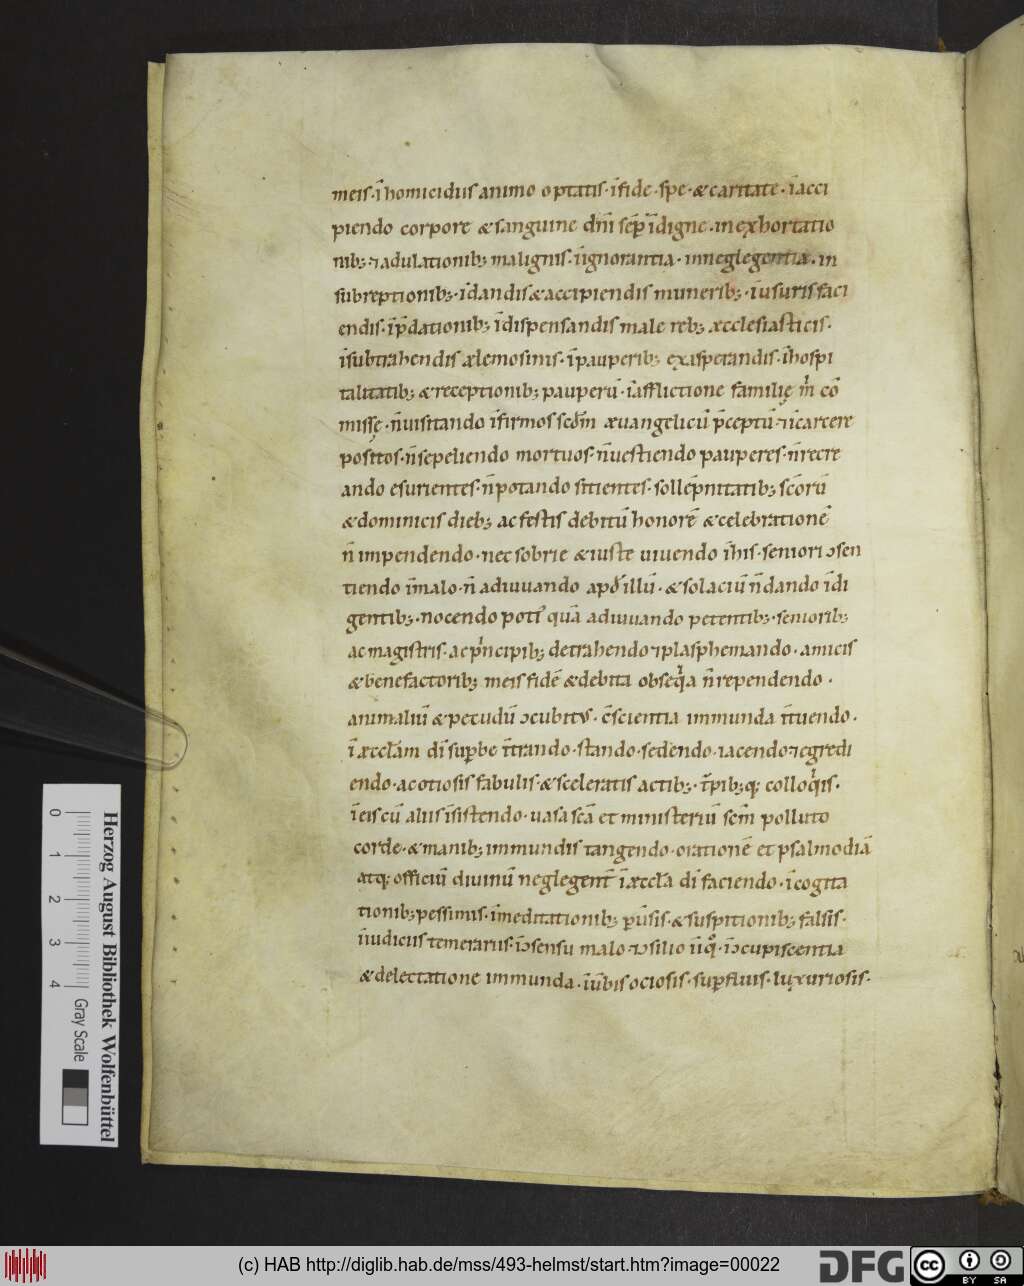 meis·ī homicidiis animo optatis·īfide·spe·&caritate·īacci
piendo corpore &sanguine dn̄i sēp īdigne·inexhortatio
nib;·⁊adulationib; malignis·īignorantia·inneglegentia·in
subreptionib;·īdandis&accipiendis munerib;·īusuris faci
endis·īp̄dationib; īdispensandis male reb; æcclesiasticis·
īsubtrahendis ælemosinis·īpauperib; exasperandis·īhospi
talitatib; &receptionib; pauperū·īafflictione familię m̄ cō
missę·n̄uisitando īfirmos scd̄m æuangelicū p̄ceptū·⁊īcarcere
positos·n̄sepeliendo mortuos·n̄uestiendo pauperes·n̄recre
ando esurientes·n̄potando sitientes·sollēpnitatib; sc̄orū
&dominicis dieb; ac festis debitū honorē &celebrationē
n̄ impendendo·nec sobrie &iuste uiuendo īhis·seniori ɔsen
tiendo īmalo·n̄ adiuuando apđ illū·&solaciū n̄dando īdi
gentib;·nocendo poti᷒ quā adiuuando petentib;·seniorib;
ac magistris·ac pͥncipib; detrahendo ⁊plasphemando·amicis
&benefactorib; meis fidē &debita obseqͥa n̄rependendo·
animaliū &pecudū ɔcubitus·cscientia immunda ītuendo·
īæccłam dī supbe ītrando·stando·sedendo·iacendo⁊egredi
endo·ac otiosis fabulis·&sceleratis actib;·t̄pib;q; colloqͥis·
īeis cū aliis īsistendo·uasa sc̄a et ministeriū scm̄ polluto
corde·&manib; immundis tangendo·orationē et psalmodiā
atq; officiū diuinū neglegent̄ īæccła dī faciendo·īcogita
tionib;pessimis·īmeditationib; puīsis·&suspitionib; falsis·
īiudiciis temerariis·īɔsensu malo·⁊ɔsilio īiqͦ·īɔcupiscentia
&delectatione immunda·īūbis ociosis·supfluis·luxuriosis·
Herzog August Bibliothek Wolfenbüttel
0 1 2 3 4 Gray Scale
(c) HAB http://diglib.hab.de/mss/493-helmst/start.htm?image=00022
DFG
cc BY SA